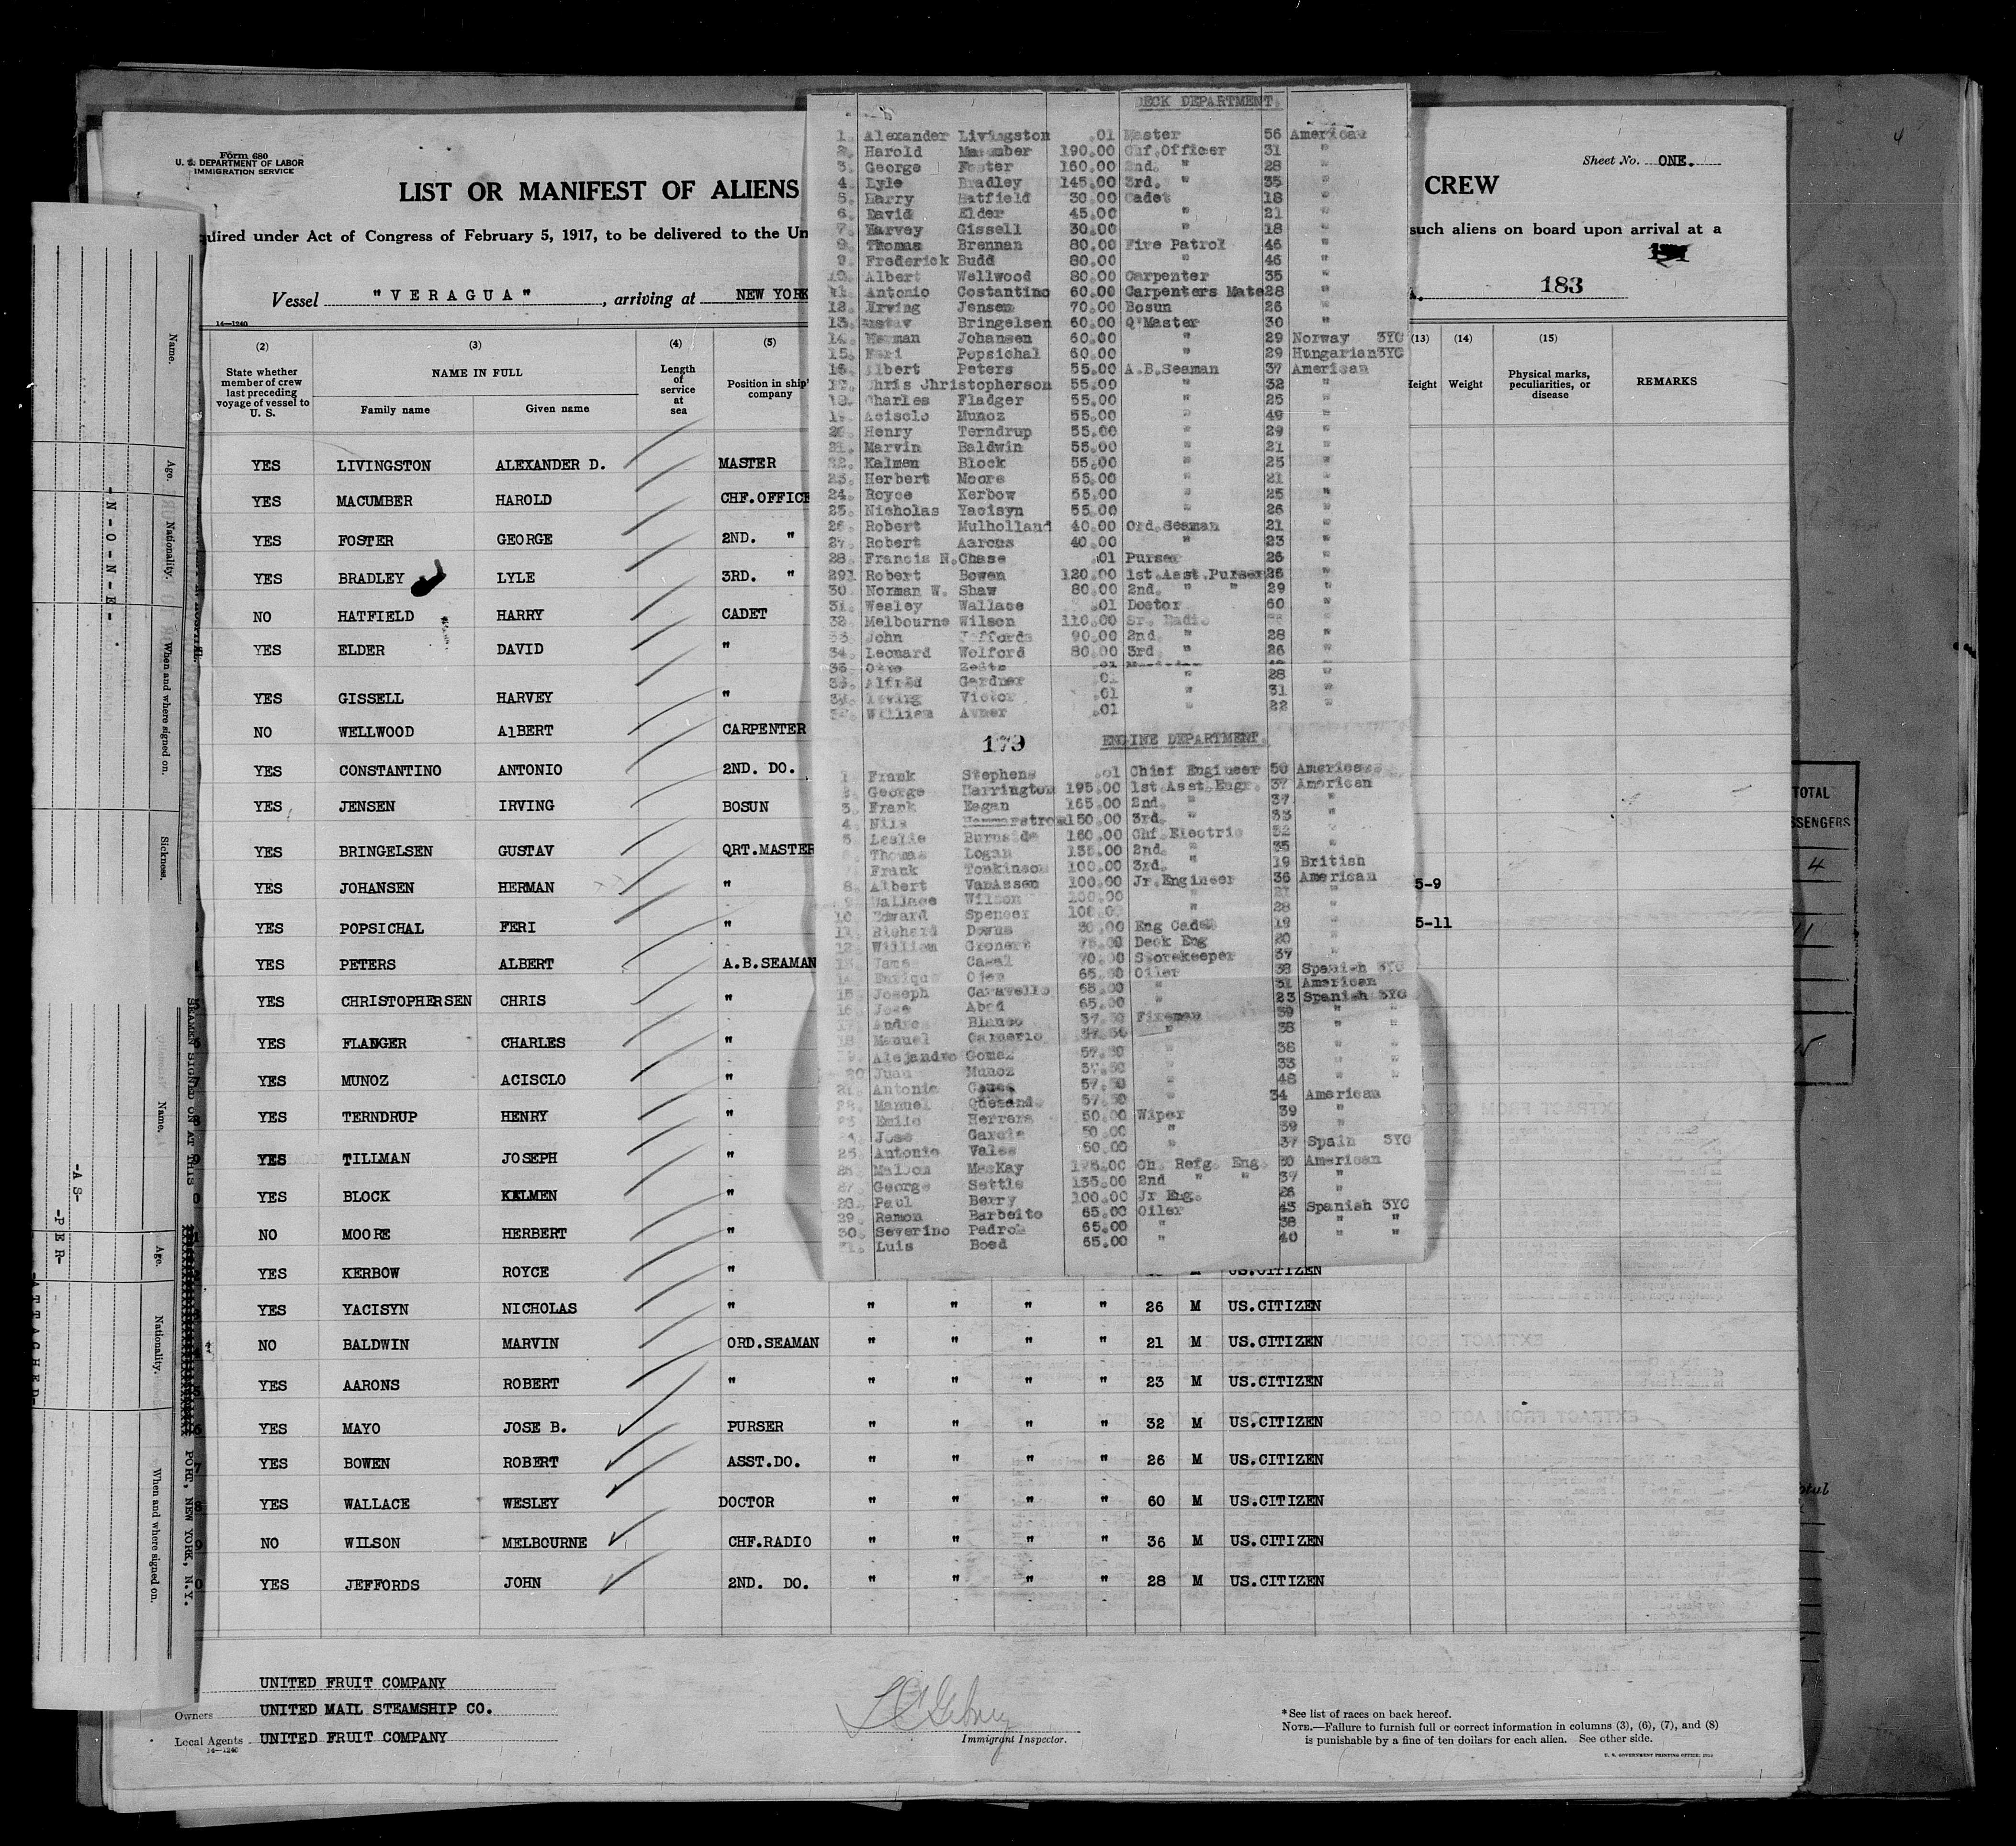 Form 680
U. S. DEPARTMENT OF LABOR
IMMIGRATION SERVICE
Sheet No. ONE.
LIST OR MANIFEST OF ALIENS
CREW
uired under Act of Congress of February 5, 1917, to be delivered to the Un
such aliens on board upon arrival at a
Vessel "VERAGUA", arriving at NEW YORK
183
14—1240
(2) (3) (4) (5)
State whether member of crew last preceding voyage of vessel to U. S.
NAME IN FULL
Family name Given name
Length of service at sea
Position in ship's company
(13) (14) (15)
Height Weight Physical marks, peculiarities, or disease REMARKS
YES LIVINGSTON ALEXANDER D. MASTER
YES MACUMBER HAROLD CHF.OFFICE
YES FOSTER GEORGE 2ND. "
YES BRADLEY LYLE 3RD. "
NO HATFIELD HARRY CADET
YES ELDER DAVID "
YES GISSELL HARVEY "
NO WELLWOOD AlBERT CARPENTER
YES CONSTANTINO ANTONIO 2ND. DO.
YES JENSEN IRVING BOSUN
YES BRINGELSEN GUSTAV QRT.MASTER
YES JOHANSEN HERMAN " 5-9
YES POPSICHAL FERI " 5-11
YES PETERS ALBERT A.B.SEAMAN
YES CHRISTOPHERSEN CHRIS "
YES FLANGER CHARLES "
YES MUNOZ ACISCLO "
YES TERNDRUP HENRY "
YES TILLMAN JOSEPH "
YES BLOCK KELMEN "
NO MOORE HERBERT "
YES KERBOW ROYCE " US.CITIZEN
YES YACISYN NICHOLAS " " " " " 26 M US.CITIZEN
NO BALDWIN MARVIN ORD.SEAMAN " " " " 21 M US.CITIZEN
YES AARONS ROBERT " " " " " 23 M US.CITIZEN
YES MAYO JOSE B. PURSER " " " " 32 M US.CITIZEN
YES BOWEN ROBERT ASST.DO. " " " " 26 M US.CITIZEN
YES WALLACE WESLEY DOCTOR " " " " 60 M US.CITIZEN
NO WILSON MELBOURNE CHF.RADIO " " " " 36 M US.CITIZEN
YES JEFFORDS JOHN 2ND. DO. " " " " 28 M US.CITIZEN
DECK DEPARTMENT.
1. Alexander Livingston .01 Master 56 American
2. Harold Macumber 190.00 Chf.Officer 31 "
3. George Foster 160.00 2nd. " 28 "
4. Lyle Bradley 145.00 3rd. " 35 "
5. Harry Hatfield 30.00 Cadet 18 "
6. David Elder 45.00 " 21 "
7. Harvey Gissell 30.00 " 18 "
8. Thomas Brennan 80.00 Fire Patrol 46 "
9. Frederick Budd 80.00 " 46 "
10. Albert Wellwood 80.00 Carpenter 35 "
11. Antonio Costantino 60.00 Carpenters Mate 28 "
12. Irving Jensen 70.00 Bosun 26 "
13. Gustav Bringelsen 60.00 Q'Master 30 "
14. Herman Johansen 60.00 " 29 Norway 3YC
15. Feri Popsichal 60.00 " 29 Hungarian3YC
16. Albert Peters 55.00 A.B.Seaman 37 American
17. Chris Jhristopherson 55.00 " 32 "
18. Charles Fladger 55.00 " 25 "
19. Acisclo Munoz 55.00 " 49 "
20. Henry Terndrup 55.00 " 29 "
21. Marvin Baldwin 55.00 " 21 "
22. Kalmen Block 55.00 " 25 "
23. Herbert Moore 55.00 " 21 "
24. Royce Kerbow 55.00 " 25 "
25. Nicholas Yacisyn 55.00 " 26 "
26. Robert Mulholland 40.00 Ord.Seaman 21 "
27. Robert Aarons 40.00 " 23 "
28. Francis N.Chase .01 Purser 26 "
291 Robert Bowen 120.00 1st.Asst.Purser 26 "
30. Norman W. Shaw 80.00 2nd. " " 29 "
31. Wesley Wallace .01 Doctor 60 "
32. Melbourne Wilson 110.00 Sr. Radio "
33. John Jeffords 90.00 2nd. " 28 "
34. Leonard Wolford 80.00 3rd. " 26 "
35. .01
36. Alfred Gardner .01 " 28 "
37. Irving Victor .01 " 31 "
38. William Avner .01 " 22 "
179
ENGINE DEPARTMENT.
1. Frank Stephens .01 Chief Engineer 50 American
2. George Harrington 195.00 1st Asst Engr. 37 American
3. Frank Eagan 165.00 2nd. " 37 "
4. Nils Hammerstrom 150.00 3rd. " 33 "
5. Leslie Burnside 160.00 Chf.Electric 32 "
6. Thomas Logan 135.00 2nd. " 35 "
7. Frank Tonkinson 100.00 3rd. " 19 British
8. Albert VanAssen 100.00 Jr.Engineer 36 American
9. Wallace Wilson 100.00 " "
10 Edward Spencer 100.00 " 28 "
11. Richard Downs 30.00 Eng Cadet 19 "
12. William Gronert 75.00 Deck Eng 20 "
13. James Casal 70.00 Storekeeper 37 "
14. Enrique 65.00 Oiler 38 Spanish 3YC
15. Joseph Caravello 65.00 " 31 American
16. Jose Abad 65.00 " 23 Spanish 3YC
17. Andres Blanco 57.50 Fireman 39 " "
18. Manuel 57.50 " 38 " "
19. Alejandro Gomez 57.50 " 38 " "
20 Juan Munoz 57.50 " 33 " "
21. Antonio 57.50 " 48 " "
22. Manuel Quesand 57.50 " 34 American
23. Emilo Herrera 50.00 Wiper 39 "
24. Jose Garcia 50.00 " 39 "
25. Antonio Vales 50.00 " 37 Spain 3YC
26. MacKay 175.00 Ch. Refg. Eng. 30 American
27. George Settle 135.00 2nd " " 37 "
28. Paul Berry 100.00 Jr Eng. 26 "
29. Ramon Barbeito 65.00 Oiler 43 Spanish 3YC
30. Severino Padron 65.00 " 38 " "
31. Luis Boed 65.00 " 40 " "
UNITED FRUIT COMPANY
Owners UNITED MAIL STEAMSHIP CO.
Local Agents UNITED FRUIT COMPANY
14—1240
Immigrant Inspector.
*See list of races on back hereof.
NOTE.—Failure to furnish full or correct information in columns (3), (6), (7), and (8)
is punishable by a fine of ten dollars for each alien. See other side.
Name. Age. Nationality. When and where signed on. Sickness.
-N-O-N-E-
SEAMEN SIGNED ON AT THIS PORT, NEW YORK, N.Y.
Name. Age. Nationality. When and where signed on.
-AS-
-PER-
-ATTACHED-
TOTAL
SSENGERS
4
11
15